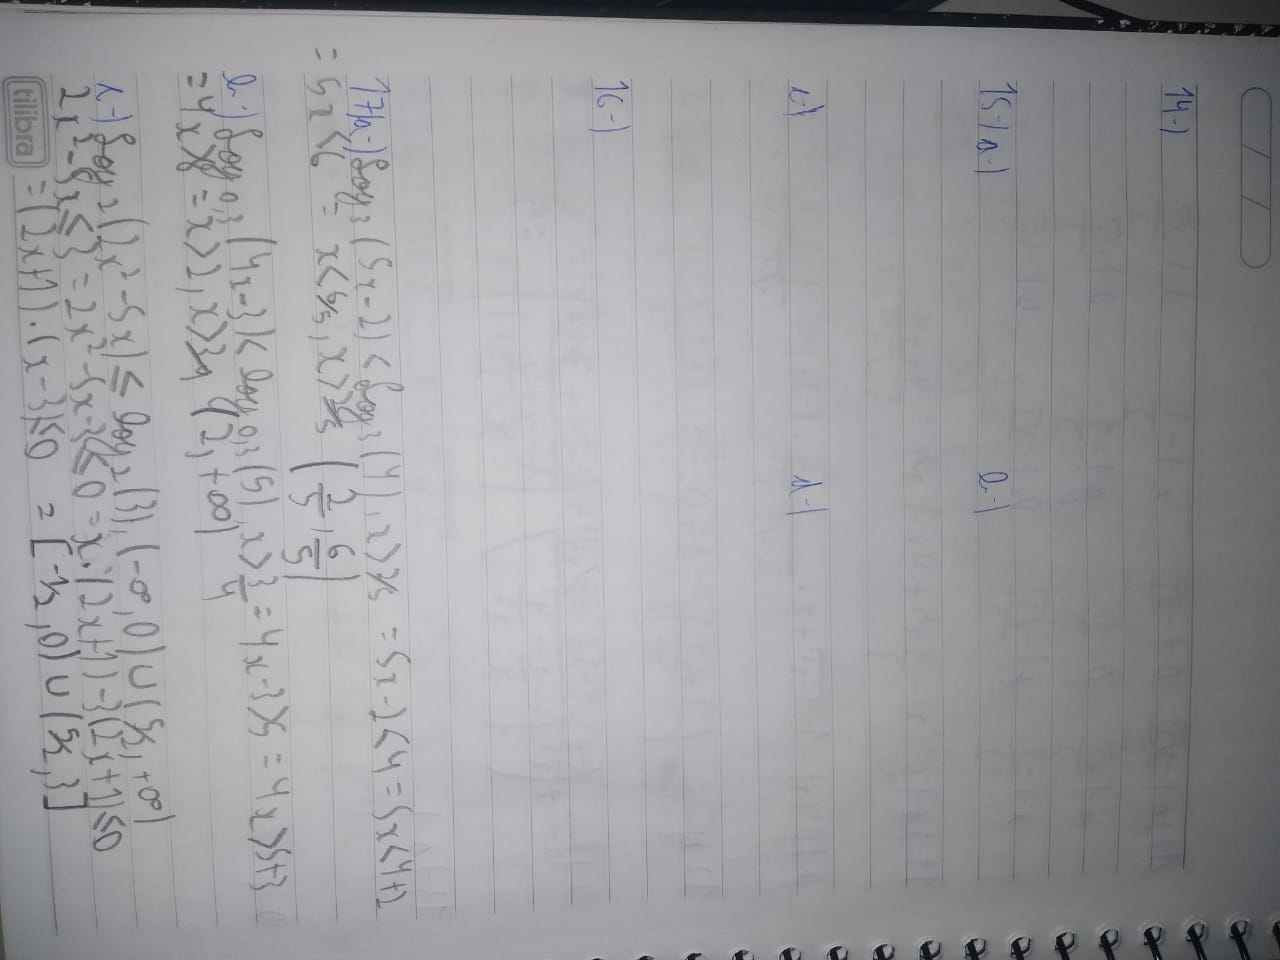 / /
14-)
15-) a-) b-)
c-) d-)
16-)
17) a-) log₃ (5x-2) < log₃ (4), x > 2/5 = 5x-2<4 = 5x<4+2
= 5x<6 = x<6/5, x>2/5 (2/5, 6/5)
b-) log 0,3 (4x-3) < log 0,3 (5), x>3/4 = 4x-3>5 = 4x>5+3
= 4x>8 = x>2, x>3/4 (2, +∞)
c-) log 2 (2x²-5x) ≤ log 2 (3), (-∞, 0) ∪ (5/2, +∞)
2x²-5x ≤ 3 = 2x²-5x-3 ≤ 0 = x·(2x+1)-3(2x+1) ≤ 0
= (2x+1)·(x-3) ≤ 0 = [-1/2, 0) ∪ (5/2, 3]
tilibra